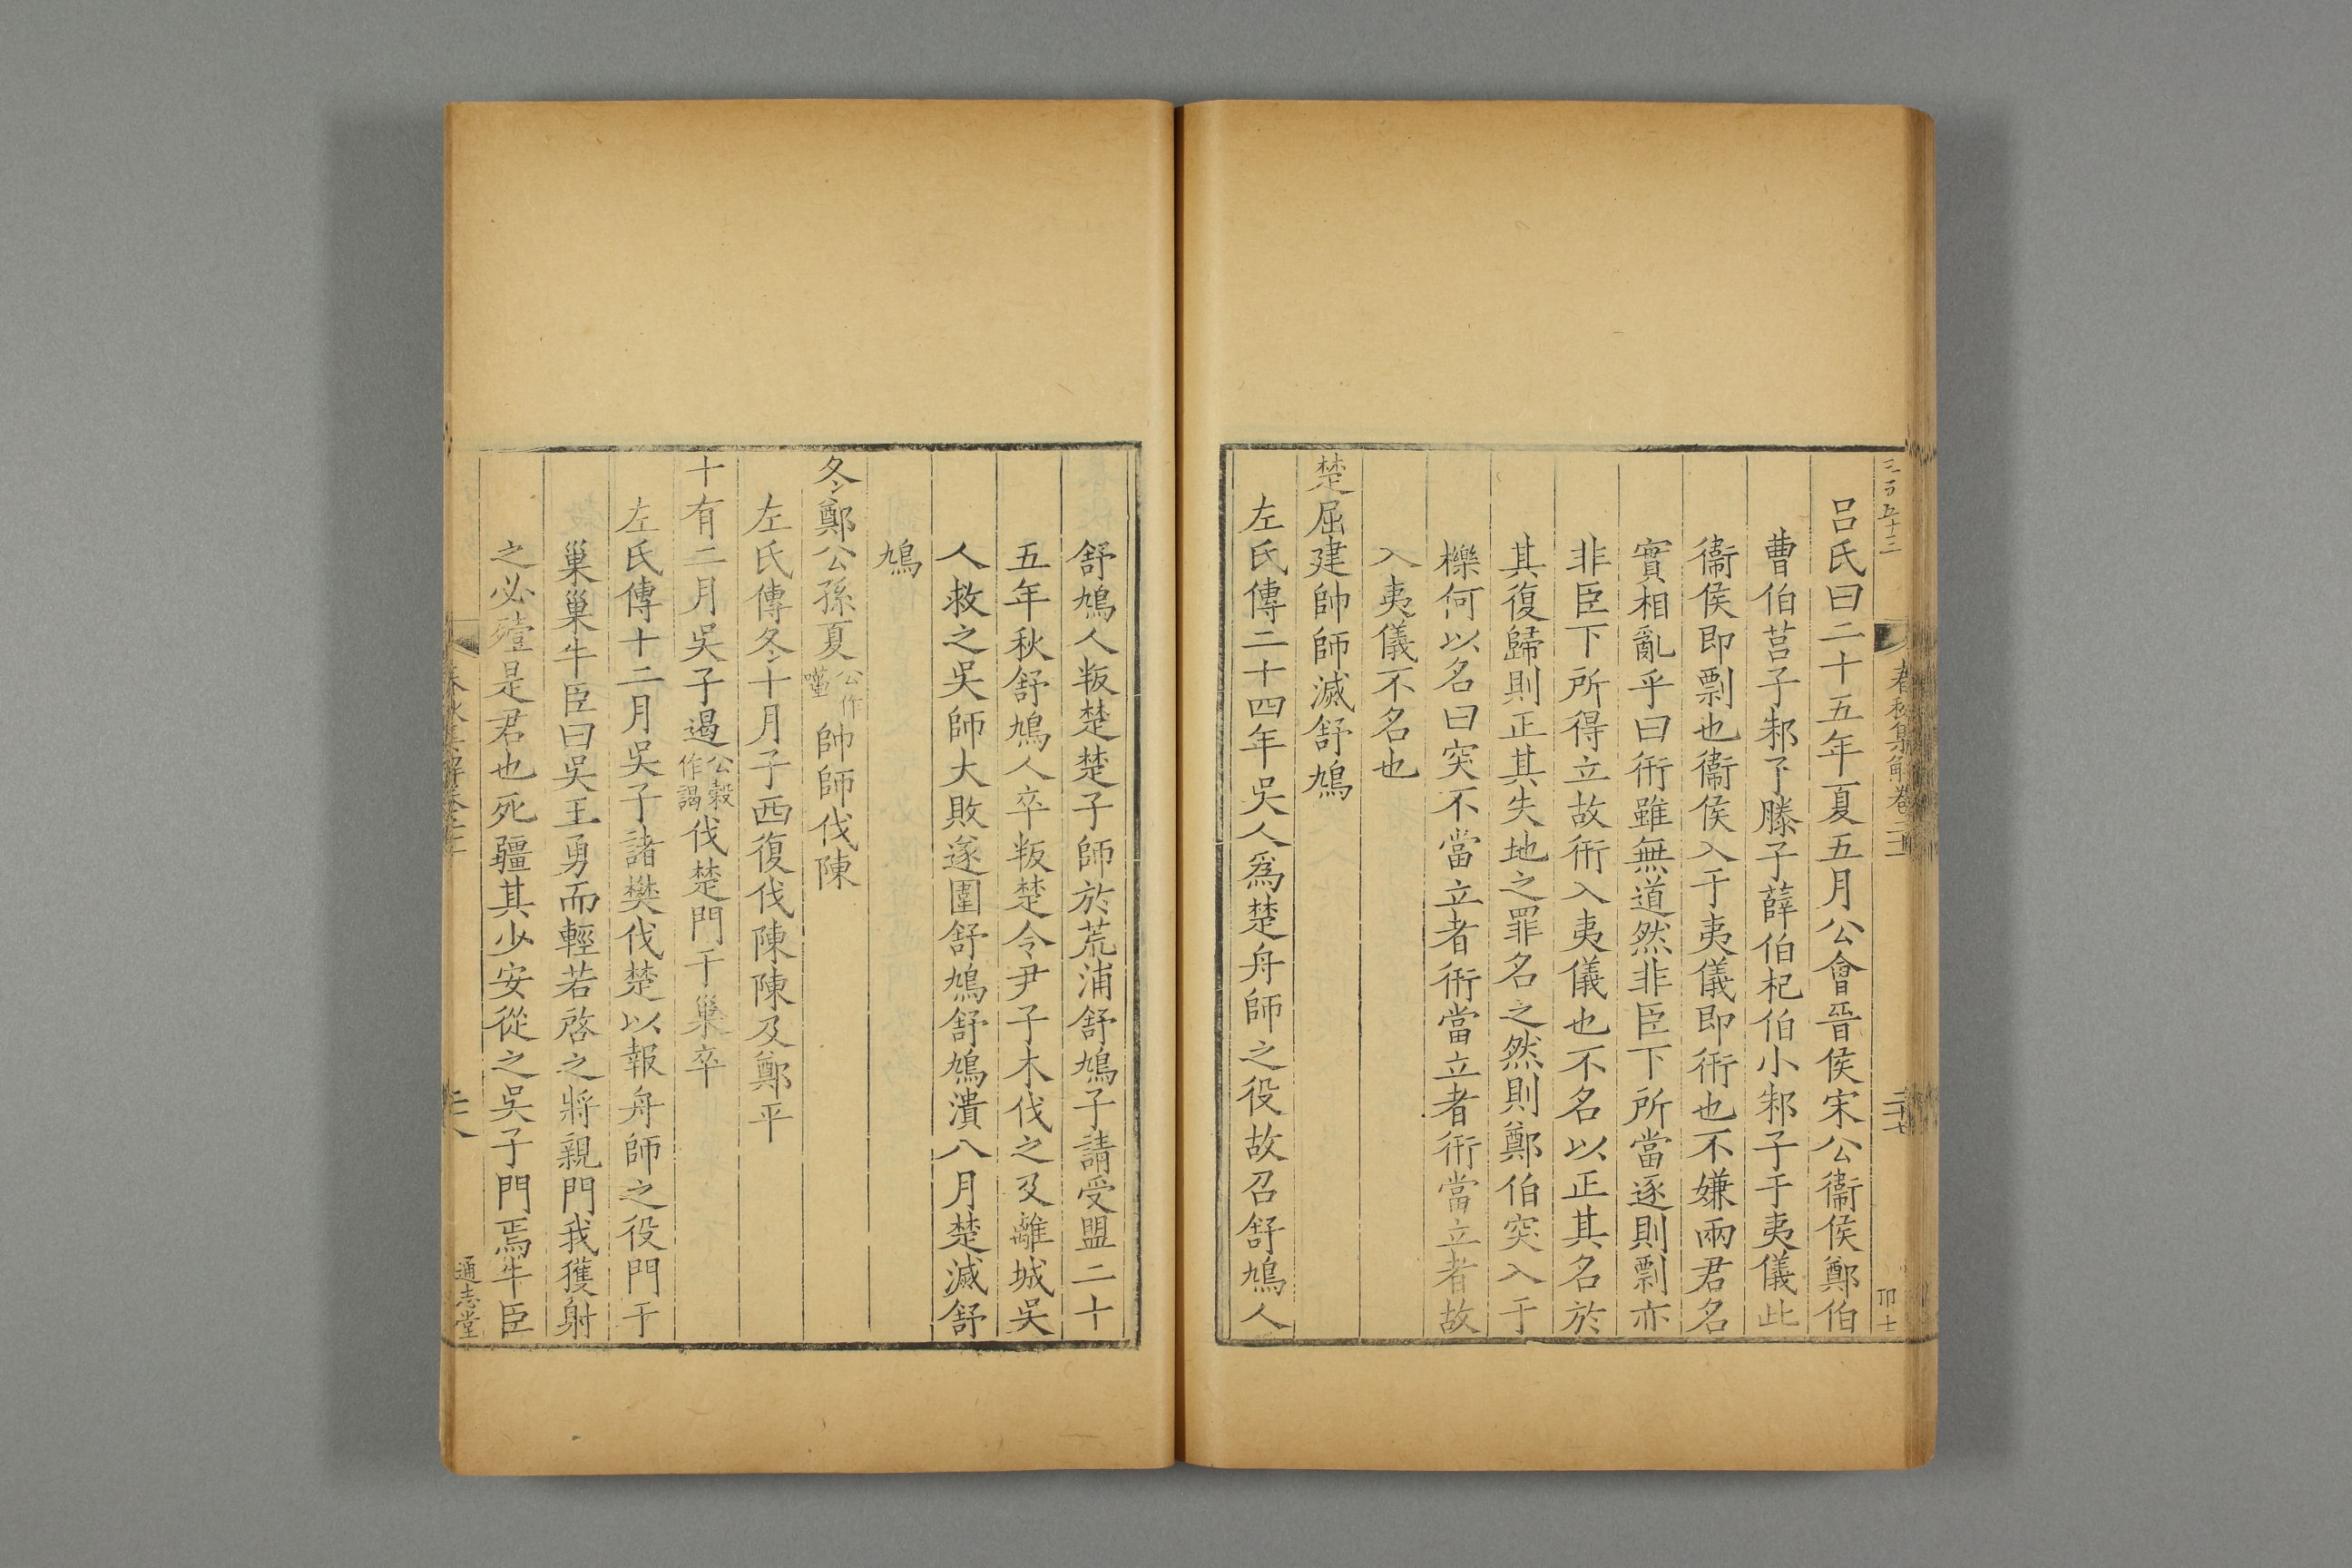 三百五十三
春秋集解卷二十
二十七
卬士
呂氏曰二十五年夏五月公會晉侯宋公衞侯鄭伯
曹伯莒子邾子滕子薛伯杞伯小邾子于夷儀此
衞侯即剽也衞侯入于夷儀即衎也不嫌兩君名
實相亂乎曰衎雖無道然非臣下所當逐則剽亦
非臣下所得立故衎入夷儀也不名以正其名於
其復歸則正其失地之罪名之然則鄭伯突入于
櫟何以名曰突不當立者衎當立者衎當立者故
入夷儀不名也
楚屈建帥師滅舒鳩
左氏傳二十四年吳人爲楚舟師之役故召舒鳩人
舒鳩人叛楚楚子師於荒浦舒鳩子請受盟二十
五年秋舒鳩人卒叛楚令尹子木伐之及離城吳
人救之吳師大敗遂圍舒鳩舒鳩潰八月楚滅舒
鳩
冬鄭公孫夏公作囆帥師伐陳
左氏傳冬十月子西復伐陳陳及鄭平
十有二月吳子遏公穀作謁伐楚門于巢卒
左氏傳十二月吳子諸樊伐楚以報舟師之役門于
巢巢牛臣曰吳王勇而輕若啓之將親門我獲射
之必殪是君也死疆其少安從之吳子門焉牛臣
春秋集解卷二十
二十八
通志堂